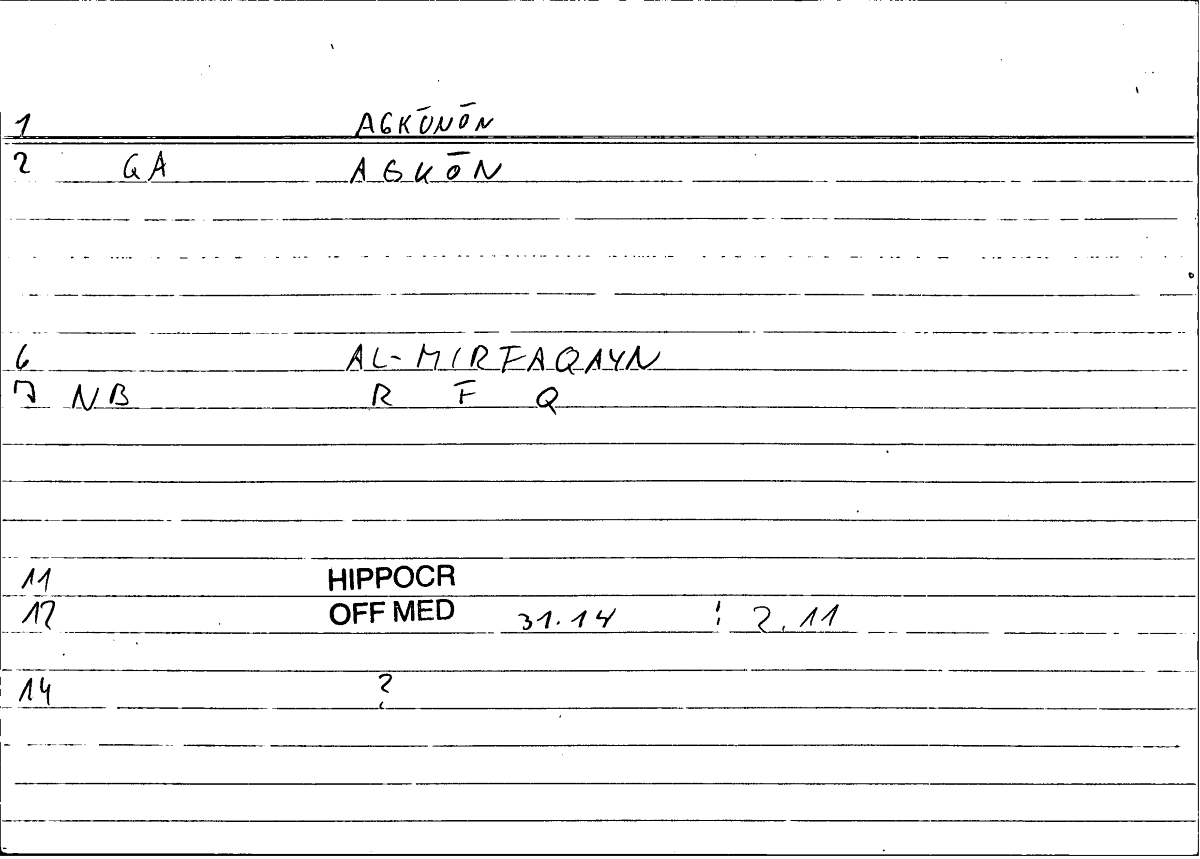 1 AGKŌNŌN
2 GA AGKŌN
6 AL-MIRFAQAYN
7 NB R F Q
11 HIPPOCR
12 OFF MED 31.14 : 2.11
14 ?